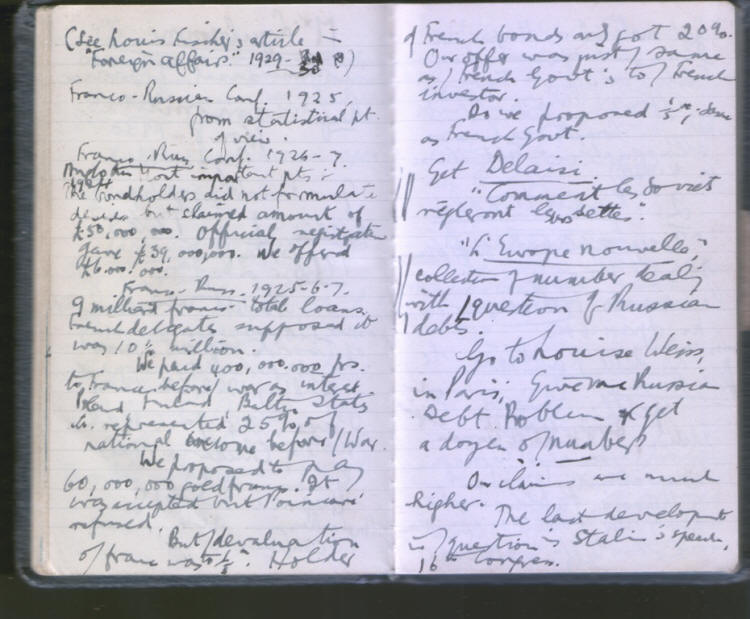 (See Louis Fischer's article in
"Foreign Affairs" 1929-30)
Franco-Russian Conf. 1925,
from statistical pt.
of view.
Franco-Russ. Conf. 1926-7.
most important pts:
The bondholders did not formulate
but claimed amount of
£50,000,000. Official
gave £39,000,000. We offered
£6.000.000.
Franco-Russ. 1925-6-7.
9 milliard francs total loans.
French delegate supposed it
was 10 ½ million.
We paid 400,000.000 frs.
to France before / war as interest
Poland Finland, Baltic States
represented 25% of
national income before / War.
We proposed to pay
60,000,000 gold francs. It
was accepted but Poincaré
refused.
But / devaluation
of franc was to ⅕. Holder
of French bonds only got 20%.
Our offer was just / same
as / French Govt's to / French
investor.
So we proposed ⅕, same
as French Govt.
Get Delaisi.
"Comment les Soviets
règleront les dettes".
"L'Europe nouvelle,"
collection of number dealing
with / question of Russian
debts.
Go to Louise Weiss,
in Paris, Give me Russian
Debt Problem & get
a dozen of numbers
Our claims are much
higher.
The last development
in / question is Stalin's speech,
16th Congress.